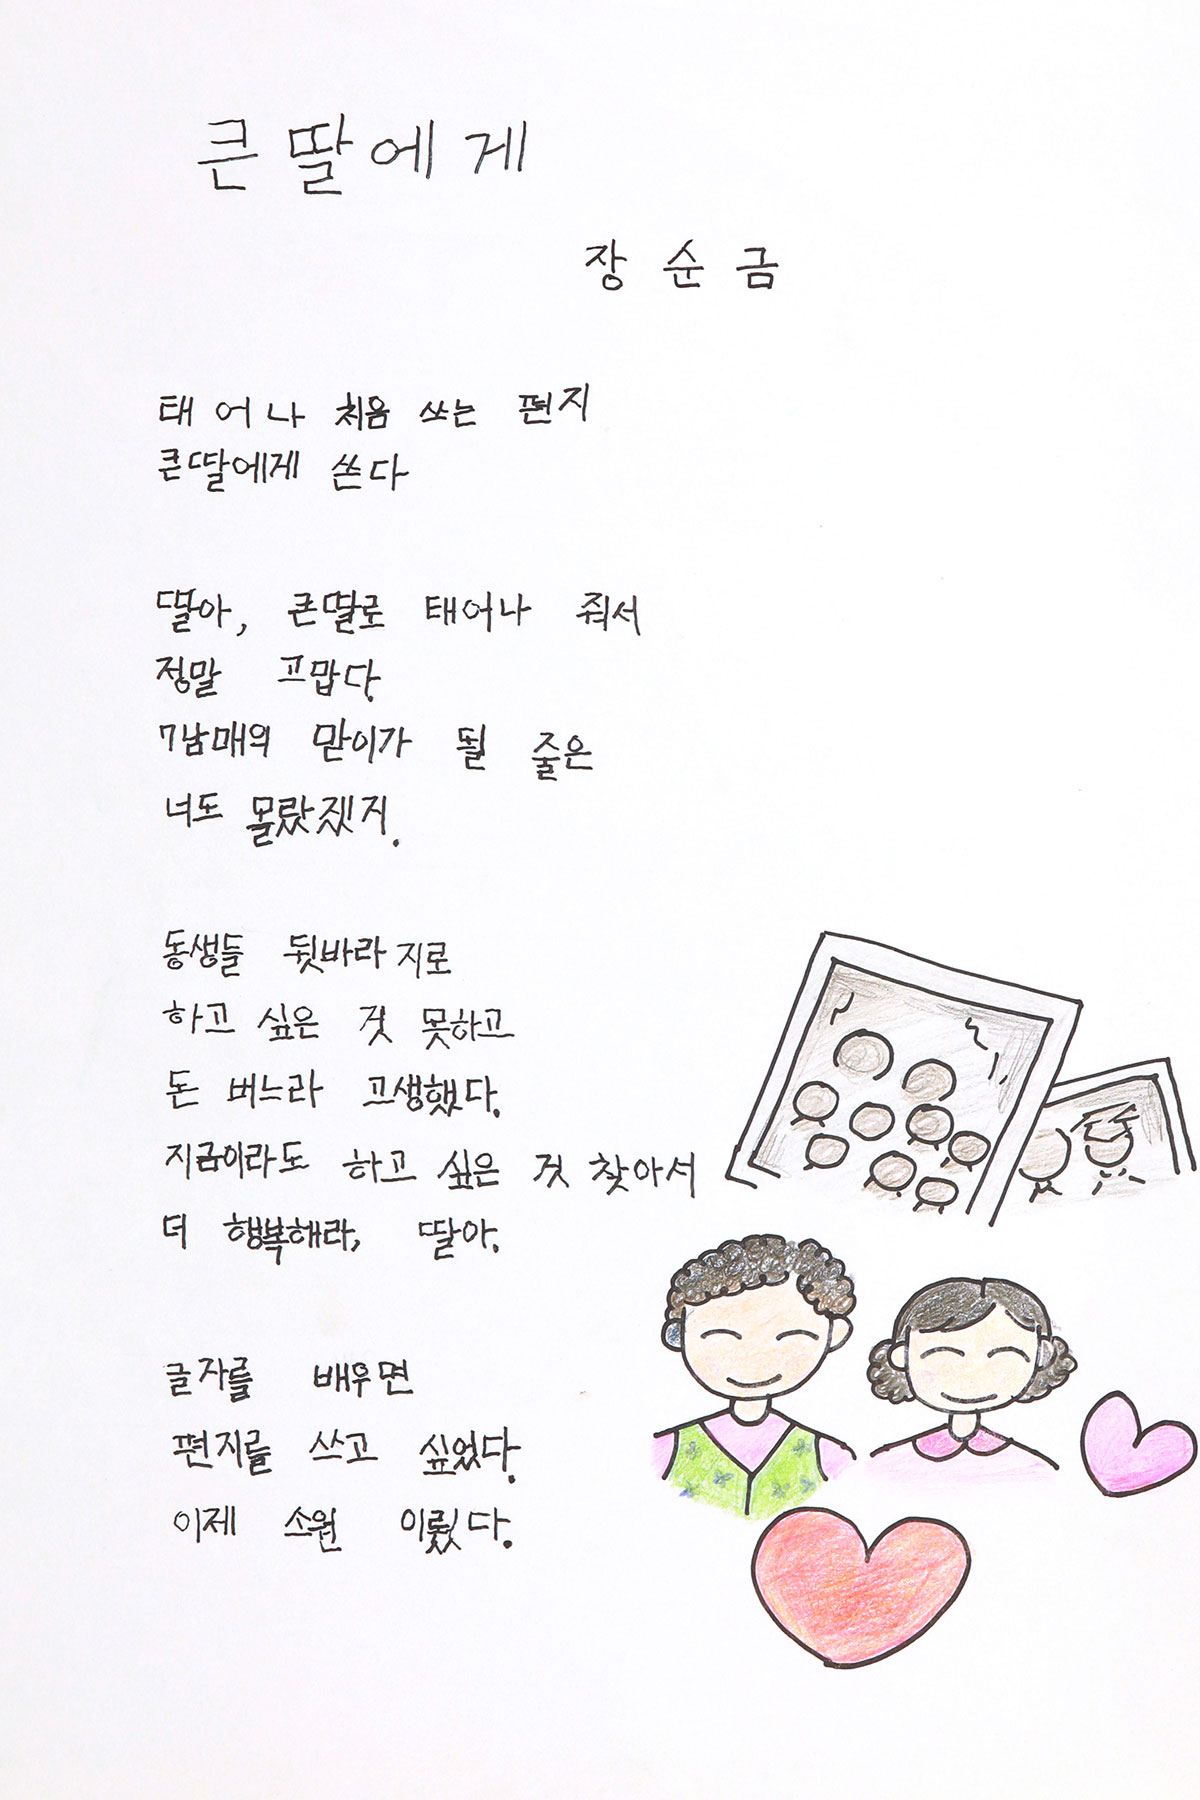 큰딸에게
장순금
태어나 처음 쓰는 편지
큰딸에게 쓴다
딸아, 큰딸로 태어나 줘서
정말 고맙다.
7남매의 맏이가 될 줄은
너도 몰랐겠지.
동생들 뒷바라지로
하고 싶은 것 못하고
돈 버느라 고생했다.
지금이라도 하고 싶은 것 찾아서
더 행복해라, 딸아.
글자를 배우면
편지를 쓰고 싶었다.
이제 소원 이뤘다.